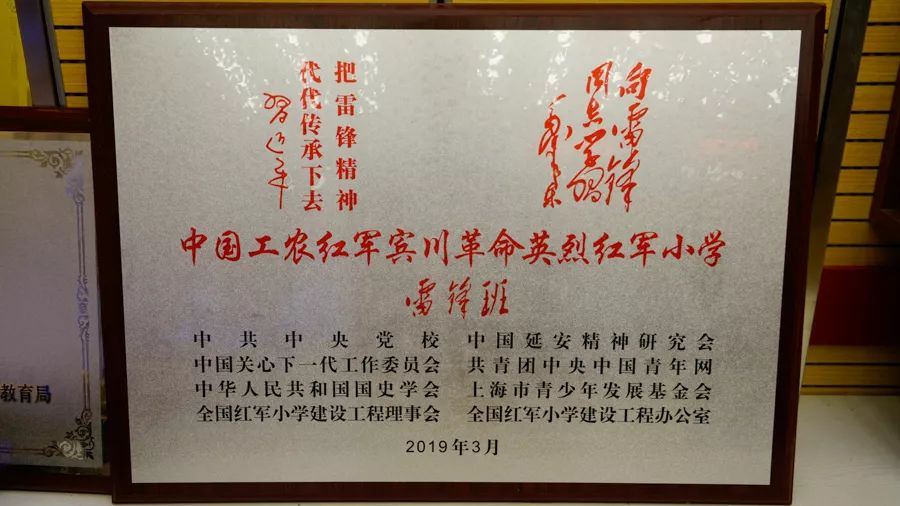 向雷锋
同志学习
毛泽东
把雷锋精神
代代传承下去
习近平
中国工农红军宾川革命英烈红军小学
雷锋班
中共中央党校 中国延安精神研究会
中国关心下一代工作委员会 共青团中央中国青年网
中华人民共和国国史学会 上海市青少年发展基金会
全国红军小学建设工程理事会 全国红军小学建设工程办公室
2019年3月
教育局